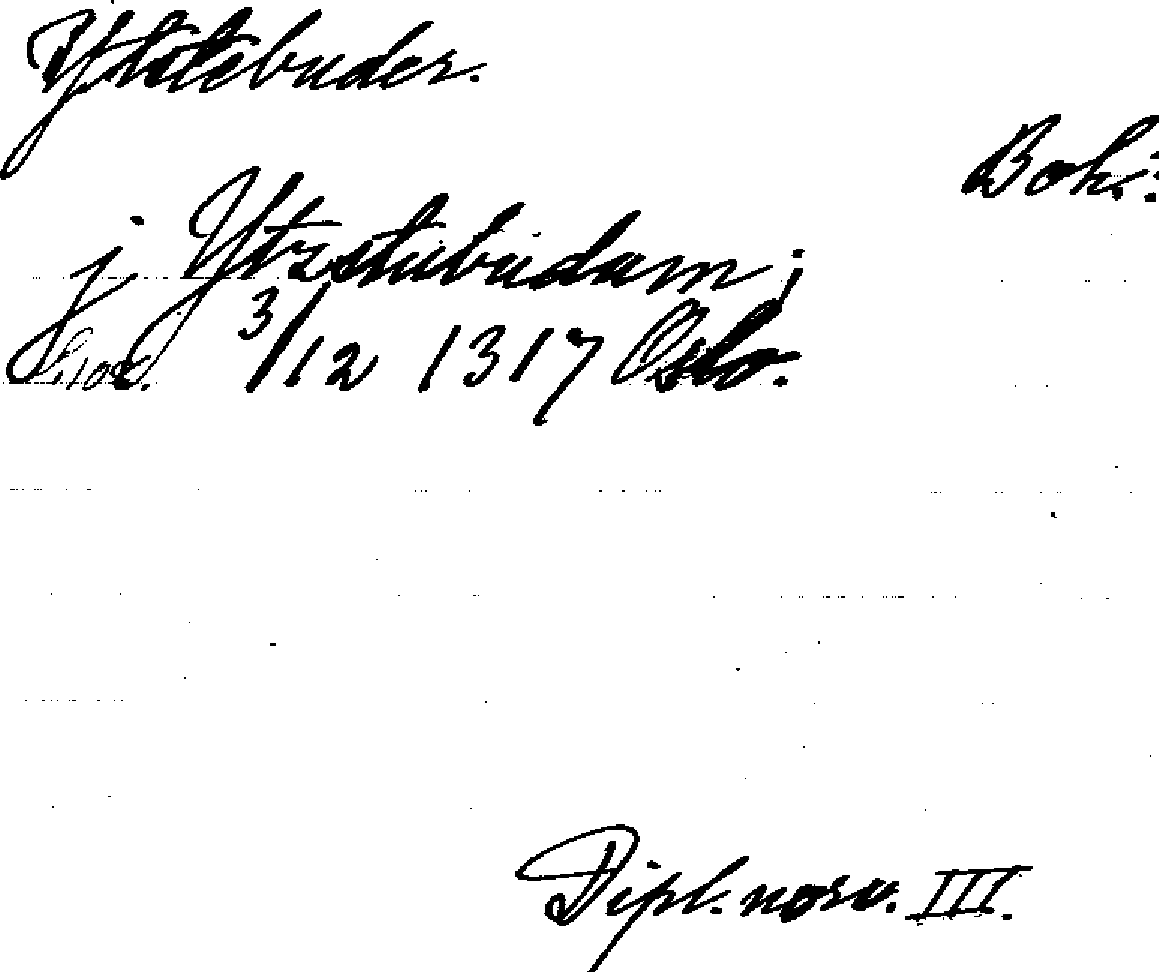 Ytstebuder.
Boh.:
j Ytzstabudum;
3/12 1317 Oslo.
Dipl. norv. III.